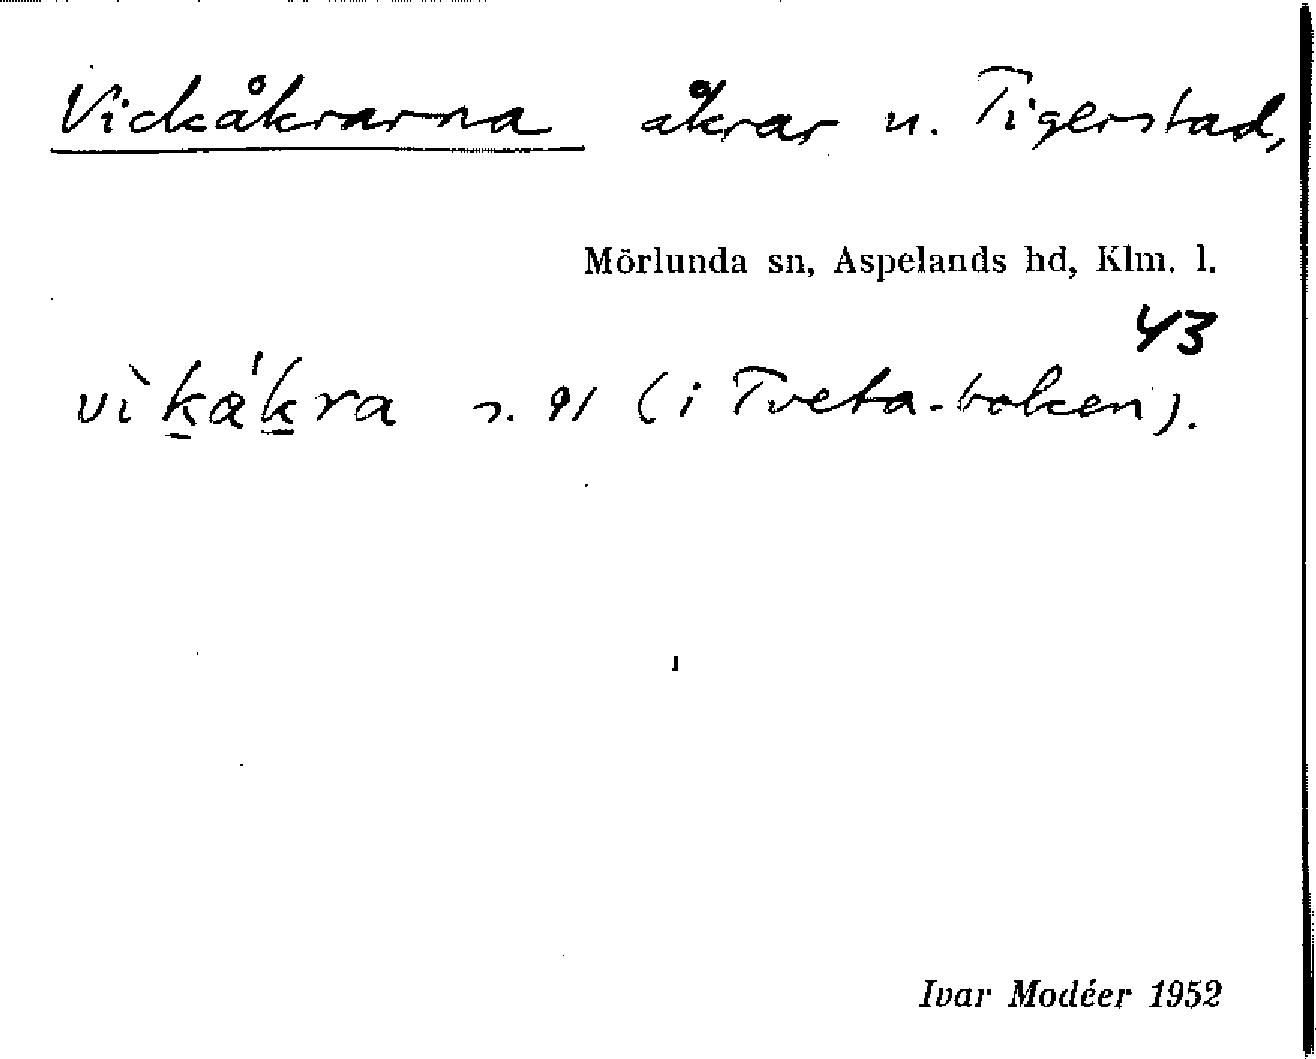 Vickåkrarna åkrar u. Tigerstad,
Mörlunda sn, Aspelands hd, Klm. l.
43
vìk̠ák̠ra s. 91 (i Tveta-boken).
Ivar Modéer 1952